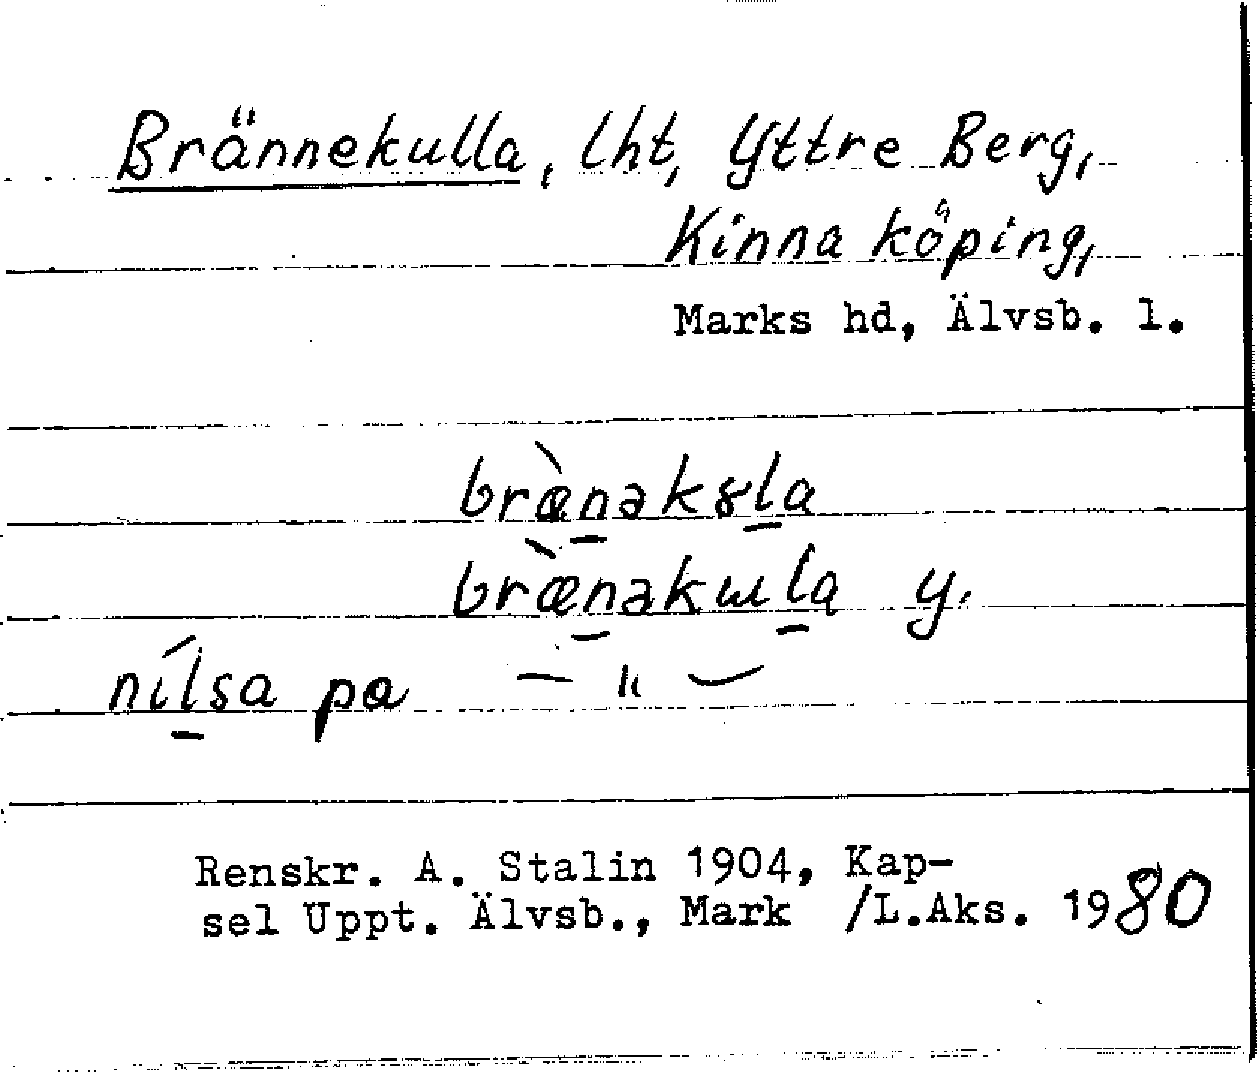 Brännekulla, lht, Yttre Berg,
Kinna köping,
Marks hd, Älvsb. l.
bræ̀n̲əkȣl̲a
bræ̀n̲əkɯl̲a y.
níl̲sa pɑ — " —
Renskr. A. Stalin 1904, Kap-
sel Uppt. Älvsb., Mark /L.Aks. 1980